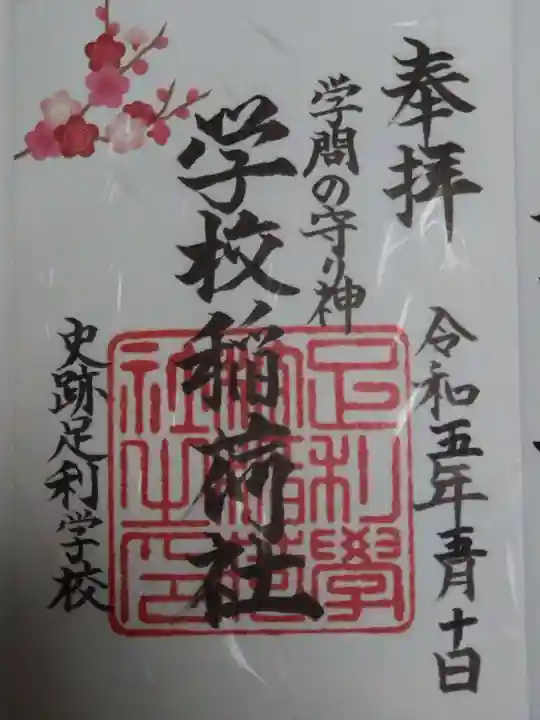 奉拝
令和五年五月十日
学問の守り神
学校稲荷社
史跡足利学校
足利學
社之印